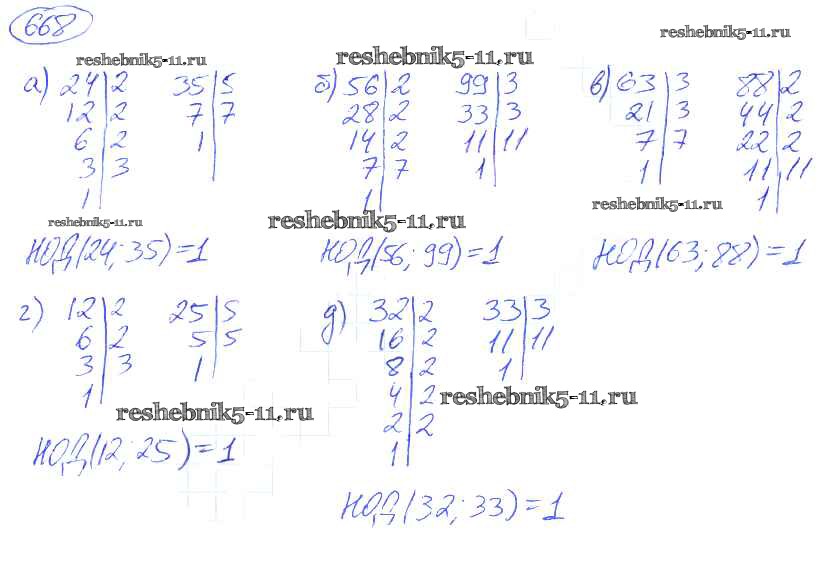 668
reshebnik5-11.ru reshebnik5-11.ru reshebnik5-11.ru
а) 24 2 35 5 б) 56 2 99 3 в) 63 3 88 2
12 2 7 7 28 2 33 3 21 3 44 2
6 2 1 14 2 11 11 7 7 22 2
3 3 7 7 1 1 11 11
1 1 1
reshebnik5-11.ru reshebnik5-11.ru reshebnik5-11.ru
НОД(24; 35)=1 НОД(56; 99)=1 НОД(63; 88)=1
г) 12 2 25 5 д) 32 2 33 3
6 2 5 5 16 2 11 11
3 3 1 8 2 1
1 4 2
reshebnik5-11.ru reshebnik5-11.ru
2 2
1
НОД(12; 25)=1
НОД(32; 33)=1